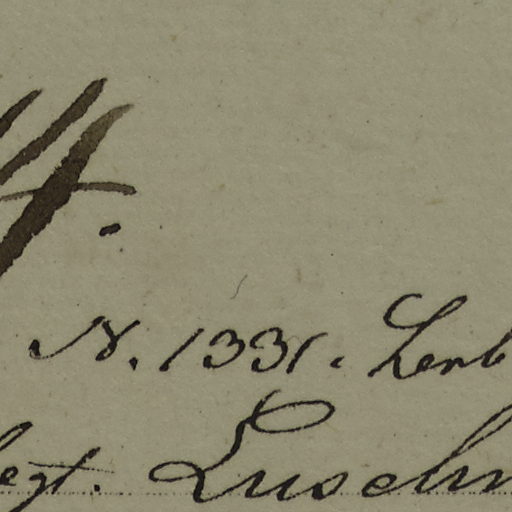 N. 1331. Lenb
legt. Luschn